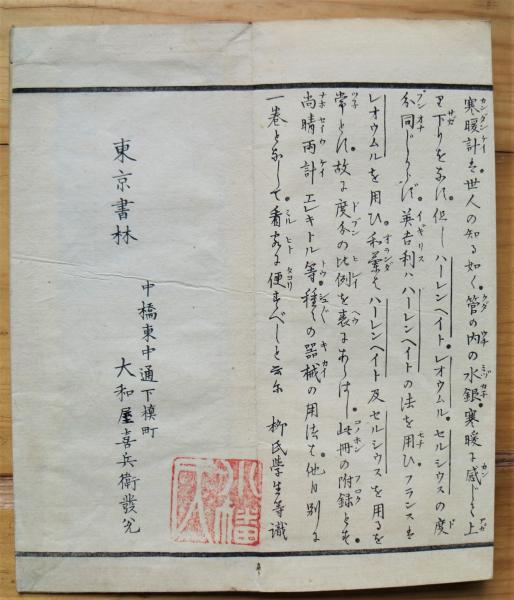 寒暖計は世人の知る如く。管の内の水銀。寒暖に感じて上
り下りをなす。但しハーレンヘイト。レオウムル。セルシウスの度
分同じからず。英吉利ハハーレンヘイトの法を用ひ。フランスは
レオウムルを用ひ。和蘭はハーレンヘイト及セルシウスを用るを
常とす。故に度分の比例を表にあらはし。此冊の附録とす。
尚晴雨計エレキトル等。種々の器械の用法は。他日別に
一巻となして看客に便すべしと云尓 柳氏學生等識
東京書林
中橋東中通下槙町
大和屋喜兵衛發兌